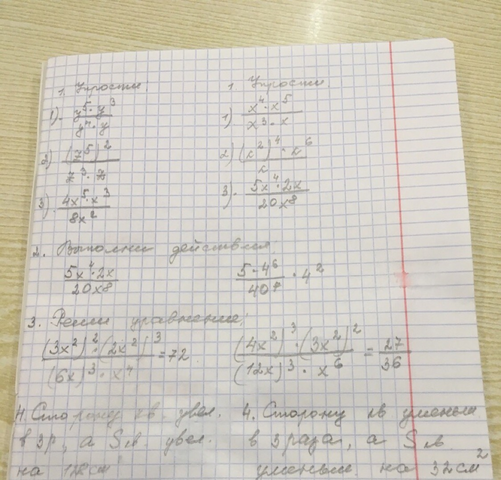 1. Упрости.
1) y⁵·y³ / y⁴·y
2) (7⁵)² / 7³·7
3) 4x⁵·x³ / 8x²
1. Упрости.
1) x⁴·x⁵ / x³·x
2) (x²)⁴·x⁶ / x
3) 5x⁴·2x / 20x⁸
2. Выполни действия
5x⁴·2x / 20x⁸
5·4⁶ / 40⁸ · 4²
3. Реши уравнение:
(3x²)²·(2x²)³ / (6x)³·x⁴ = 72
(4x²)³·(3x²)² / (12x)³·x⁶ = 27/36
4. Сторону кв. увел.
в 3р, а Sкв. увел.
на см²
4. Сторону кв уменьш
в 3 раза, а Sкв
уменьш. на 32 см²